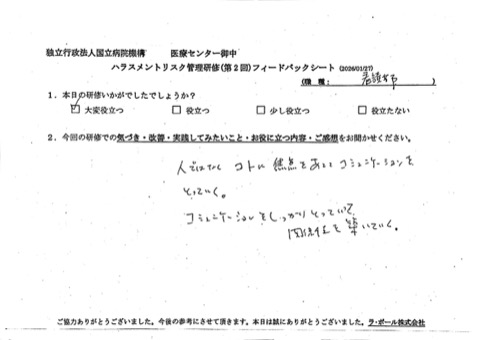 独立行政法人国立病院機構　　医療センター御中
ハラスメントリスク管理研修(第2回)フィードバックシート (2026/01/27)
(職種：看護師)
1．本日の研修いかがでしたでしょうか？
☑ 大変役立つ　□ 役立つ　□ 少し役立つ　□ 役立たない
2．今回の研修での気づき・改善・実践してみたいこと・お役に立つ内容・ご感想をお聞かせください。
人ではなく コトに 焦点をあてて コミュニケーションを
とっていく。
コミュニケーションをしっかりとっていて
関係性を築いていく。
ご協力ありがとうございました。今後の参考にさせて頂きます。本日は誠にありがとうございました。ラ・ポール株式会社